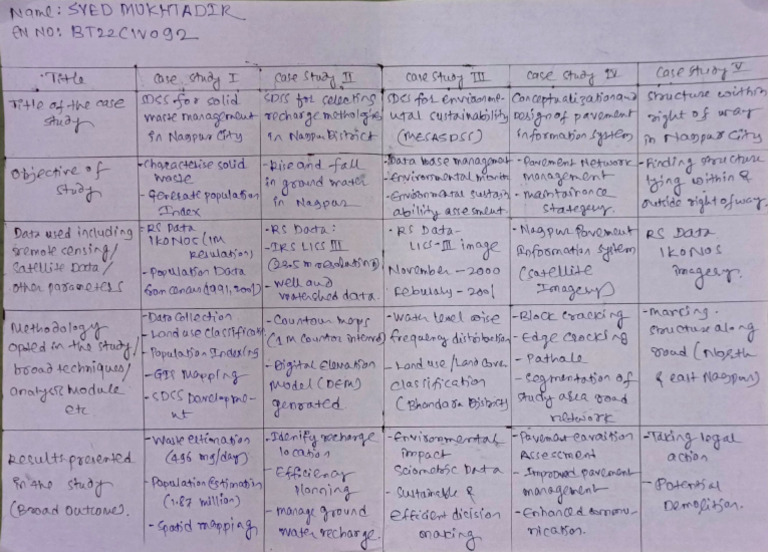 Name: SYED MUKHTADIR
EN NO: BT22CIV092
Title
case study I
case study II
case study III
case study IV
case study V
Title of the case
study
SDSS for solid
waste management
in Nagpur City
SDSS for selecting
recharge methologies
in Nagpur District
DSS for environme-
ntal sustainability
(MESASDSS)
Conceptualization and
Design of pavement
information system
Structure within
right of way
in Nagpur City
Objective of
study
-characterise solid
waste
- Generate population
Index
- Rise and fall
in ground water
in Nagpur
-Data base management
- Environmental monito
- Environmental sustain
ability assesment.
- Pavement Network
management
- maintainance
stategery.
- Finding structure
lying within &
outside right of way.
Data used including
remote censing/
satellite Data/
other parameters
- RS Data
IKONOS (1M
resulation)
- Population Data
from cencus (1991, 2001)
- RS Data:
- IRS LISS III
(23.5 m resolating)
- well and
watershed data.
- RS Data-
LISS-III image
November - 2000
Febulaly - 2001
- Nagpur Pavement
Information system
(satellite
Imagery)
RS Data
IKONOS
imagery.
Methodology
opted in the study/
broad techniques/
analysis module
etc
-Data Collection
- Land use classificati
- Population Indexing
- GIS Mapping
- SDSS Developme-
nt
- Countour maps
(1 m countor interval)
- Digital Elevation
Model (DEM)
genrated
- Water level wise
frequency distribution
- Land use/Land cover
classification
(Bhandara District)
- Block cracking
- Edge cracking
- Pathale
- Segmentation of
study area road
network
- marking.
structure along
road (North
& east Nagpur)
Results presented
in the study
(Broad outcome).
- Waste estimation
(496 mg/day)
- Population Estimation
(1.87 million)
- Spatial mapping
- Idenify recharge
location
- Efficiency
planning
- manage ground
water recharge.
- Environmental
impact
Sciometric Data
- Sustainable &
Efficient dicision
making
- Pavement
Assessment
- Improved pavement
management
- Enhanced commu-
nication.
- Taking legal
action
- Potential
Demolition.